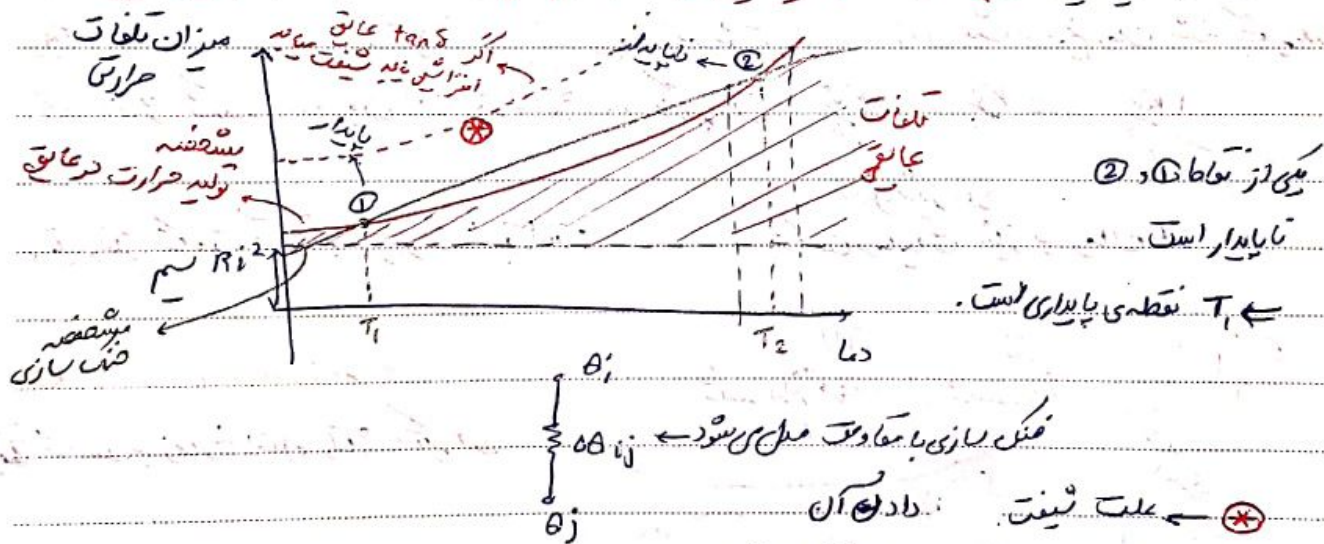 میزان تلفات
حرارتی
اگر tanδ عایق
افزایش یابد شیفت میابد
ناپایدار
②
پایدار
①
مشخصه
تولید حرارت در عایق
تلفات
عایقی
Ri² سیم
مشخصه
خنک سازی
T₁
T₂
دما
یکی از نقاط ① و ②
ناپایدار است.
⇐ T₁ نقطه‌ی پایداری است.
θi
Δθij
θj
خنک سازی با مقاومت مدل می‌شود ←
علت شیفت دادن آن